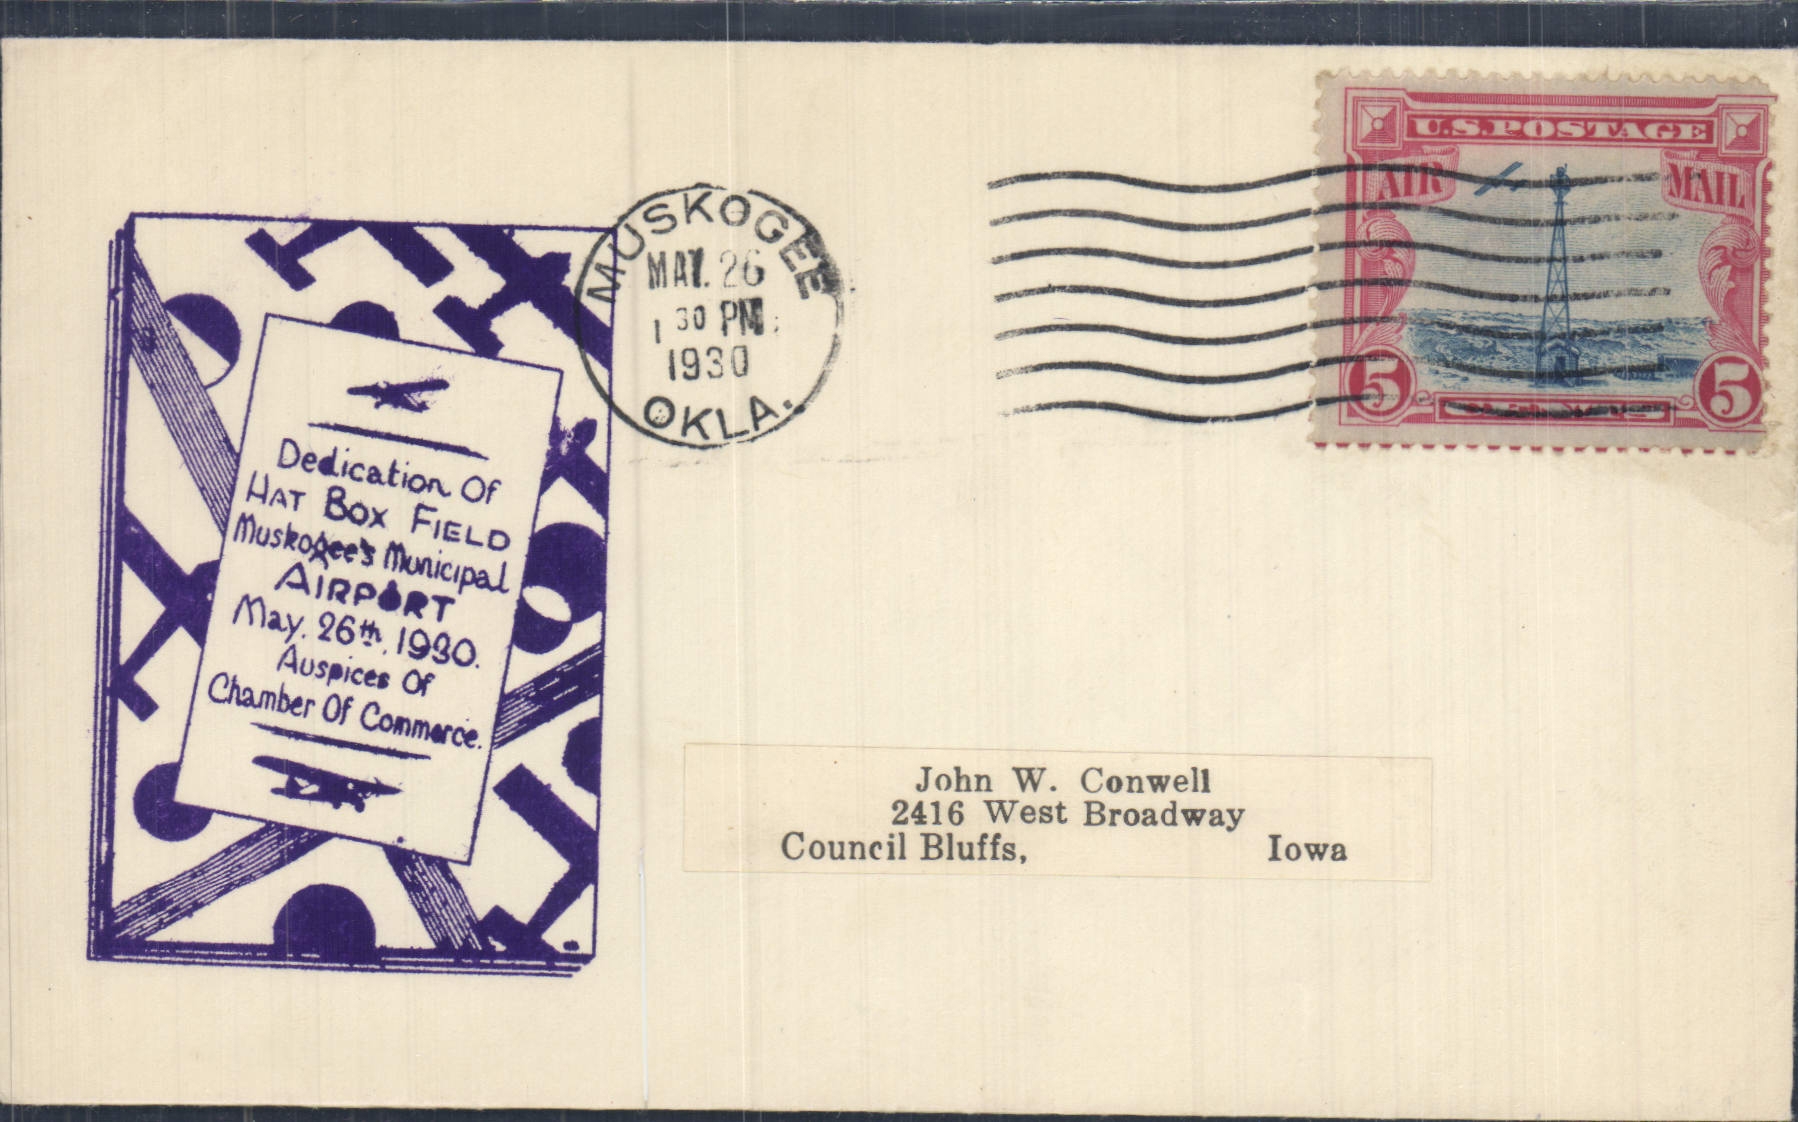 U.S. POSTAGE
AIR MAIL
5 5
MUSKOGEE
MAY. 26
1 30 PM
1930
OKLA.
Dedication Of
HAT BOX FIELD
Muskogee's Municipal
AIRPORT
May. 26th, 1930.
Auspices Of
Chamber Of Commerce.
John W. Conwell
2416 West Broadway
Council Bluffs, Iowa